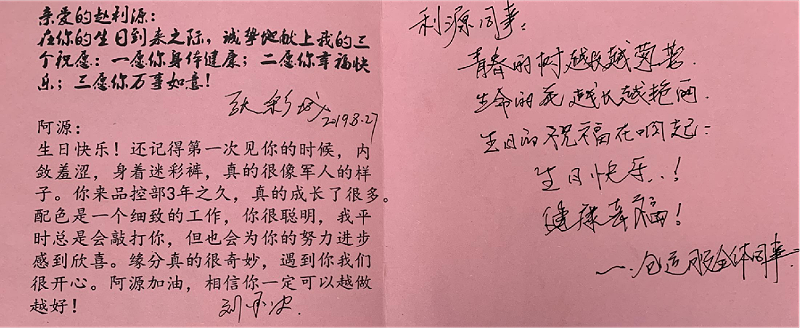 亲爱的赵利源:
在你的生日到来之际,诚挚地献上我的三
个祝愿:一愿你身体健康;二愿你幸福快
乐;三愿你万事如意!
2019.8.27
阿源:
生日快乐!还记得第一次见你的时候,内
敛羞涩,身着迷彩裤,真的很像军人的样
子。你来品控部3年之久,真的成长了很多。
配色是一个细致的工作,你很聪明,我平
时总是会敲打你,但也会为你的努力进步
感到欣喜。缘分真的很奇妙,遇到你我们
很开心。阿源加油,相信你一定可以越做
越好!
利源同事:
青春的树越长越茂
生命的花越长越艳丽.
生日的祝福在响起:
生日快乐..!
健康幸福!
全体同事